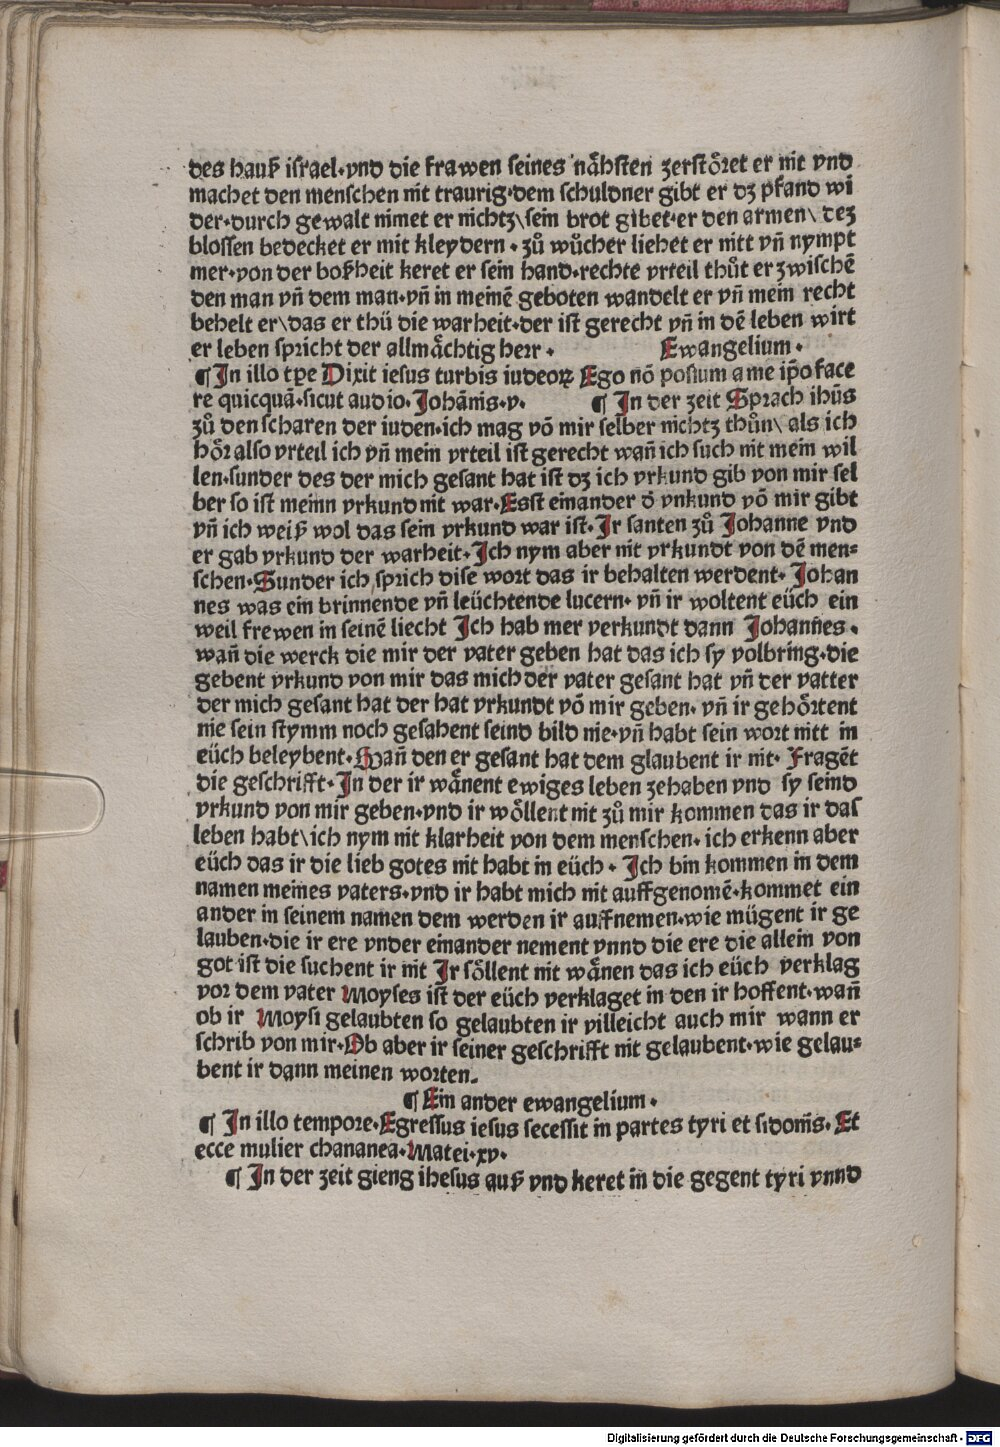 des hauß israel·vnd die frawen seines naͤhsten zerstoͤret er nit vnd
machet den menschen nit traurig·dem schuldner gibt er dz pfand wi
der·durch gewalt nimet er nichtz\sein brot gibet·er den armen\ dez
blossen bedecket er mit kleydern · zuͦ wuͤcher liehet er nitt vñ nympt
mer·von der boßheit keret er sein hand·rechte vrteil thuͦt er zwischē
den man vñ dem man·vñ in meinē geboten wandelt er vñ mein recht
behelt er\das er thü die warheit·der ist gerecht vñ in dē leben wirt
er leben spricht der allmaͤchtig herr · Ewangelium ·
¶ In illo tpe Dixit iesus turbis iudeoꝝ Ego nō possum a me ip̄o face
re quicquā·sicut audio·Johānis·v· ¶ In der zeit Sprach ihūs
zuͦ den scharen der iuden·ich mag vō mir selber nichtz thuͦn\ als ich
hoͤr also vrteil ich vñ mein vrteil ist gerecht wañ ich such nit mein wil
len·sunder des der mich gesant hat ist dz ich vrkund gib von mir sel
ber so ist meinn vrkund nit war·Esst einander ō vnkund vō mir gibt
vñ ich weiß wol das sein vrkund war ist·Ir santen zuͦ Johanne vnd
er gab vrkund der warheit·Ich nym aber nit vrkundt von dē men=
schen·Sunder ich sprich dise wort das ir behalten werdent· Johan
nes was ein brinnende vñ leüchtende lucern· vñ ir woltent eüch ein
weil frewen in seinē liecht Ich hab mer verkundt dann Johannes·
wañ die werck die mir der vater geben hat das ich sy volbring·die
gebent vrkund von mir das mich der vater gesant hat vñ der vatter
der mich gesant hat der hat vrkundt vō mir geben· vñ ir gehoͤrtent
nie sein stymm noch gesahent seind bild nie·vñ habt sein wort nitt in
eüch beleybent·Wañ den er gesant hat dem glaubent ir nit· Fragēt
die geschrifft·In der ir waͤnent ewiges leben zehaben vnd sy seind
vrkund von mir geben·vnd ir woͤllent nit zuͦ mir kommen das ir das
leben habt\ich nym nit klarheit von dem menschen·ich erkenn aber
eüch das ir die lieb gotes nit habt in eüch · Ich bin kommen in dem
namen meines vaters·vnd ir habt mich nit auffgenomē·kommet ein
ander in seinem namen dem werden ir auffnemen·wie mügent ir ge
lauben·die ir ere vnder einander nement vnnd die ere die allein von
got ist die suchent ir nit Ir soͤllent nit waͤnen das ich eüch verklag
vor dem vater Moyses ist der eüch verklaget in den ir hoffent·wañ
ob ir Moysi gelaubten so gelaubten ir villeicht auch mir wann er
schrib von mir·Ob aber ir seiner geschrifft nit gelaubent·wie gelau=
bent ir dann meinen worten.
¶ Ein ander ewangelium·
¶ In illo tempore·Egressus iesus secessit in partes tyri et sidonis· Et
ecce mulier chananea·Matei·xv·
¶ In der zeit gieng ihesus auß vnd keret in die gegent tyri vnnd
Digitalisierung gefördert durch die Deutsche Forschungsgemeinschaft - DFG